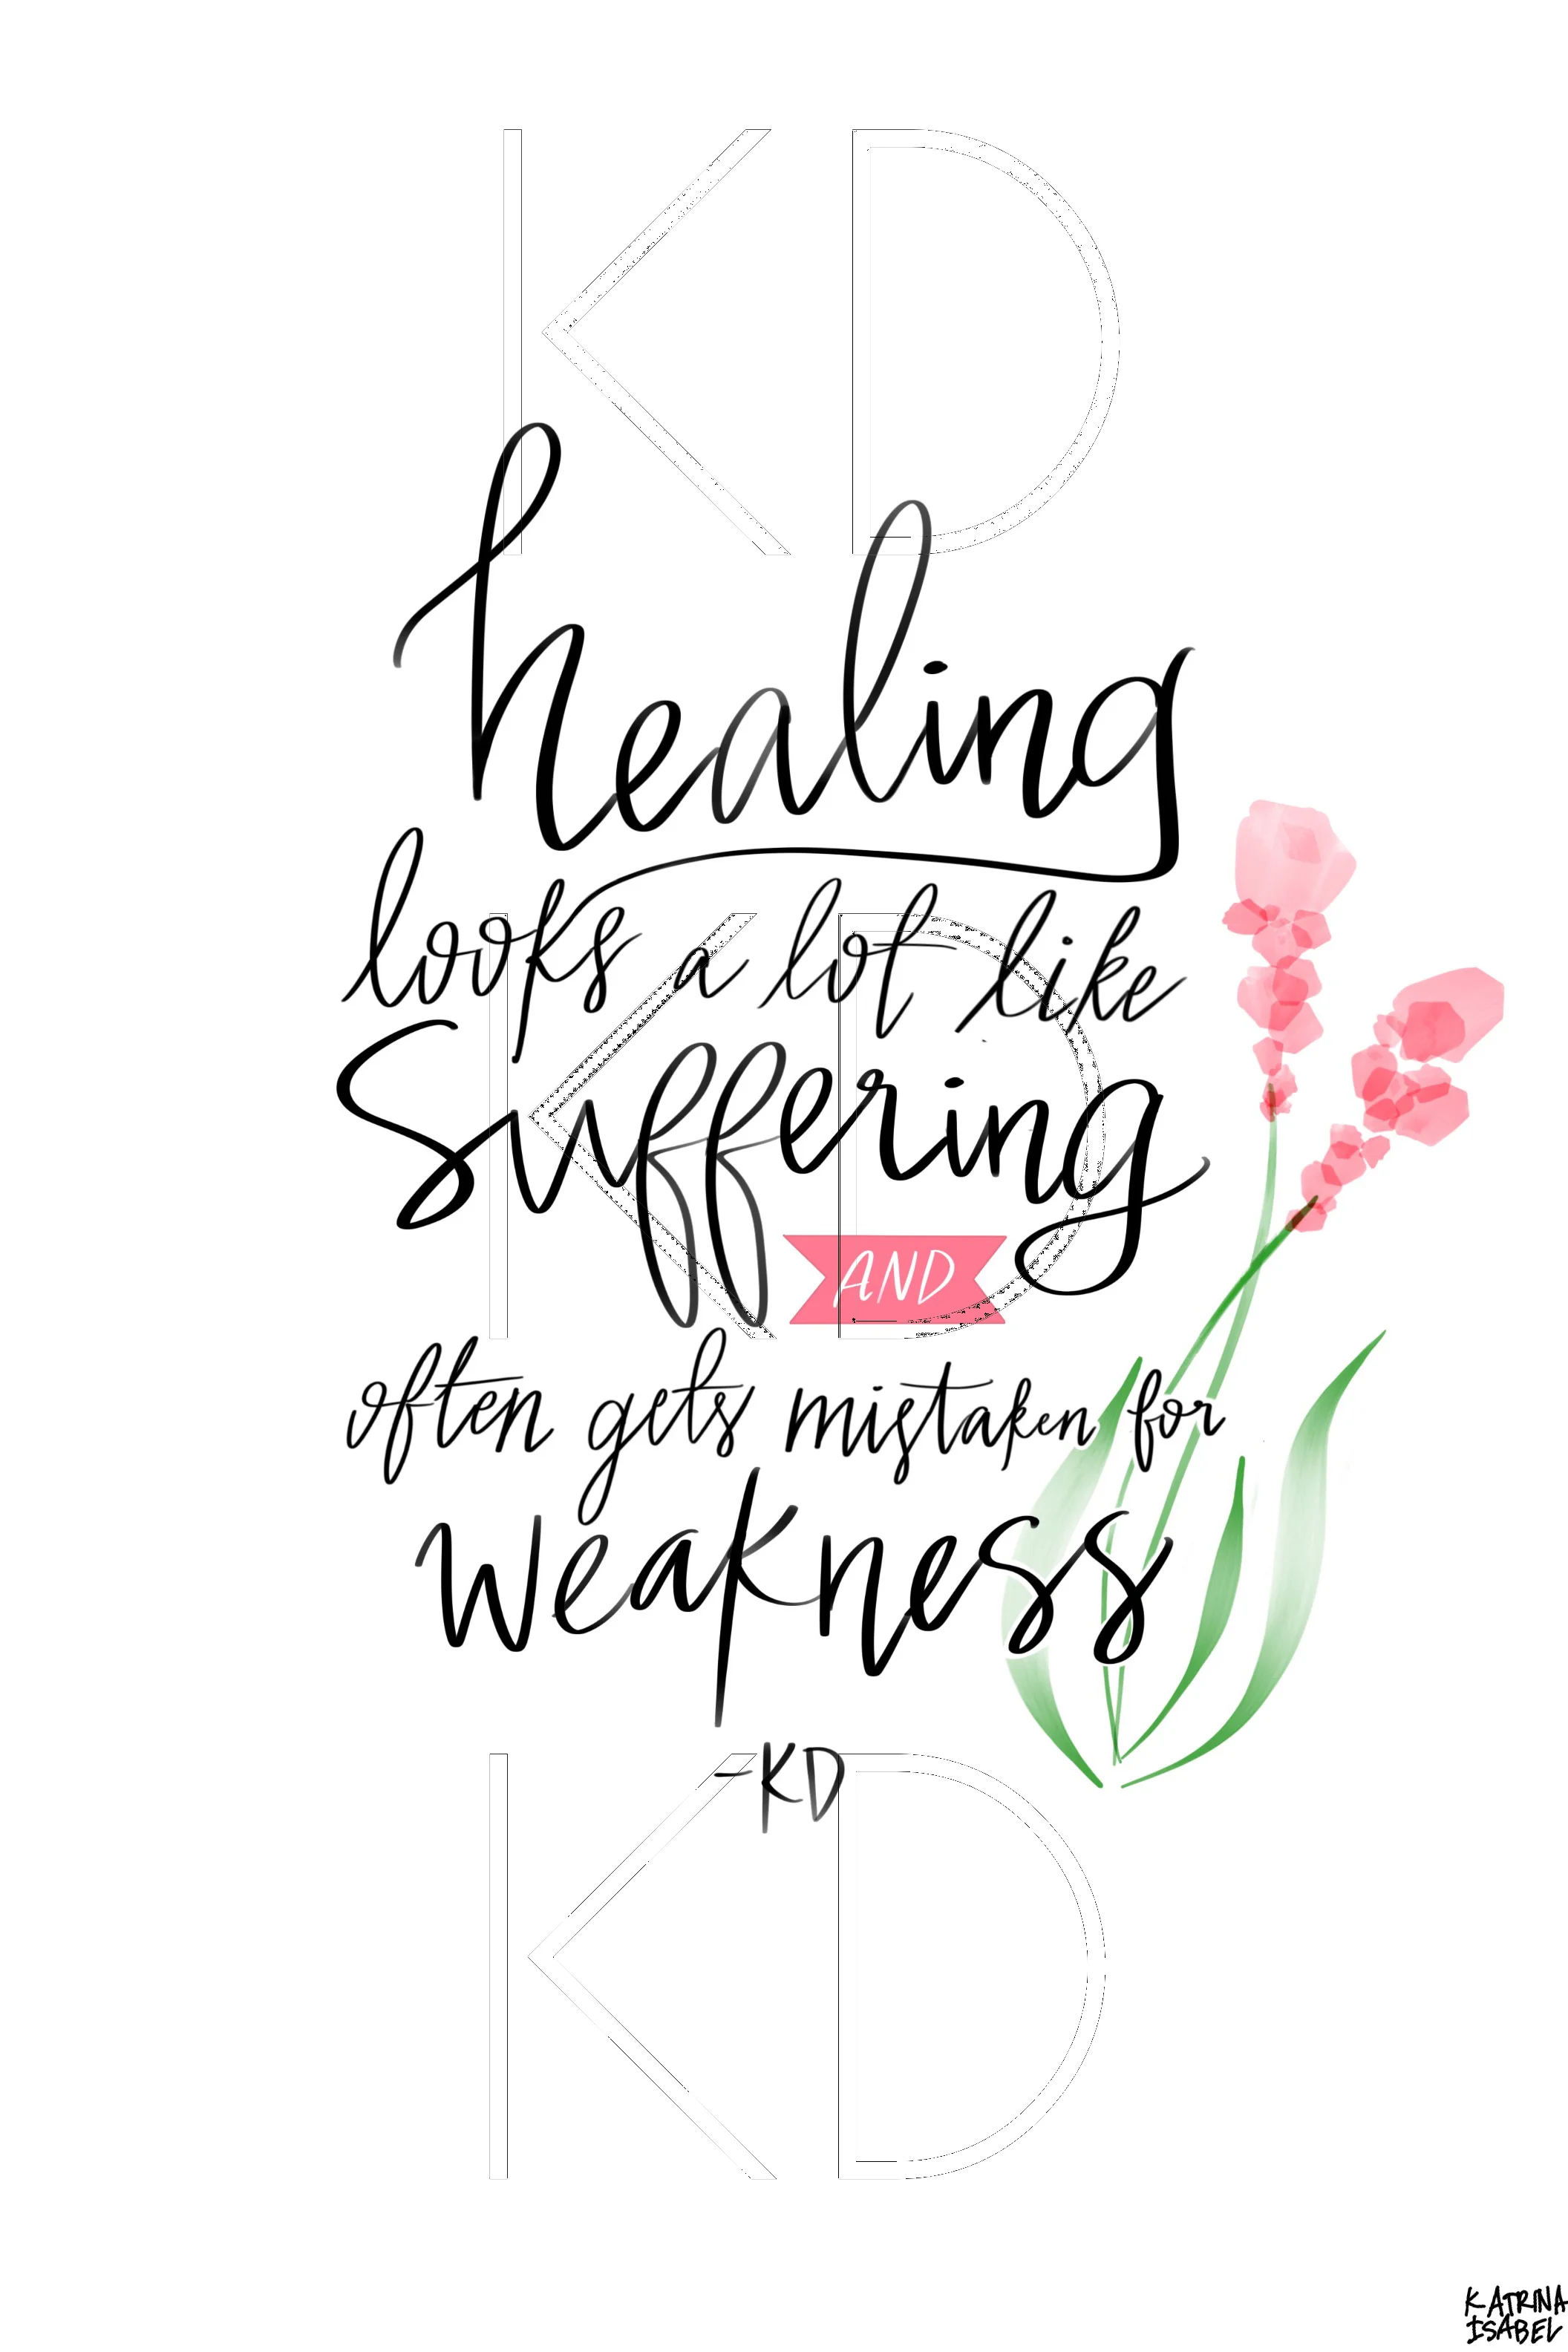 KD
healing
looks a lot like
KD
suffering
AND
often gets mistaken for
weakness
-KD
KD
KATRINA
ISABEL